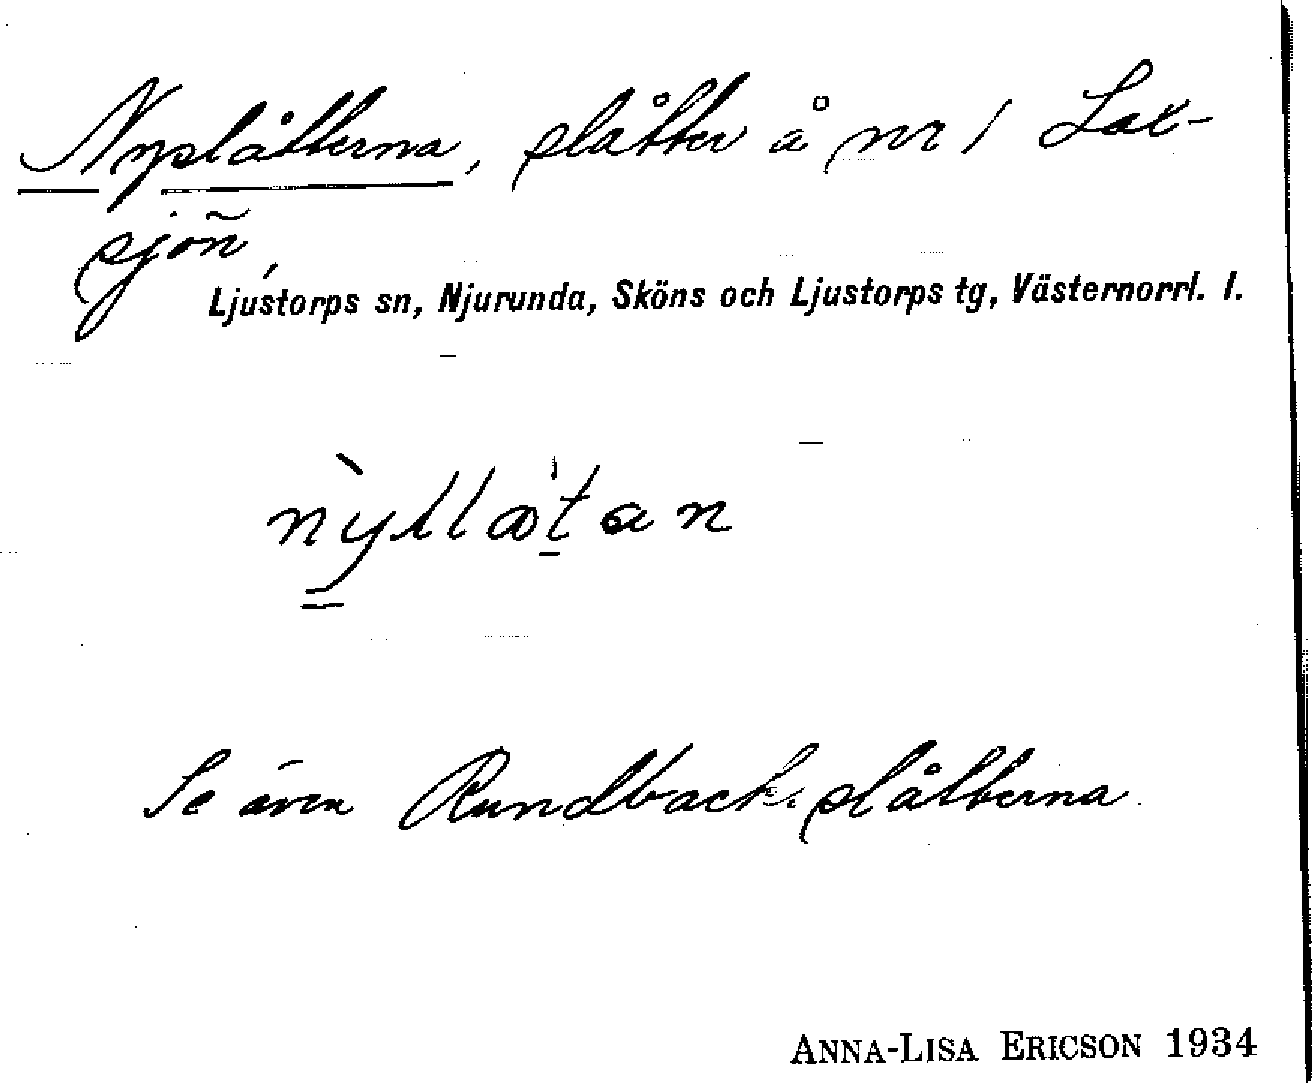 Nyslåtterna, slåtter å nr 1 Lax-
sjön,
Ljustorps sn, Njurunda, Sköns och Ljustorps tg, Västernorrl. l.
Se även Rundbackslåtterna
ANNA-LISA ERICSON 1934